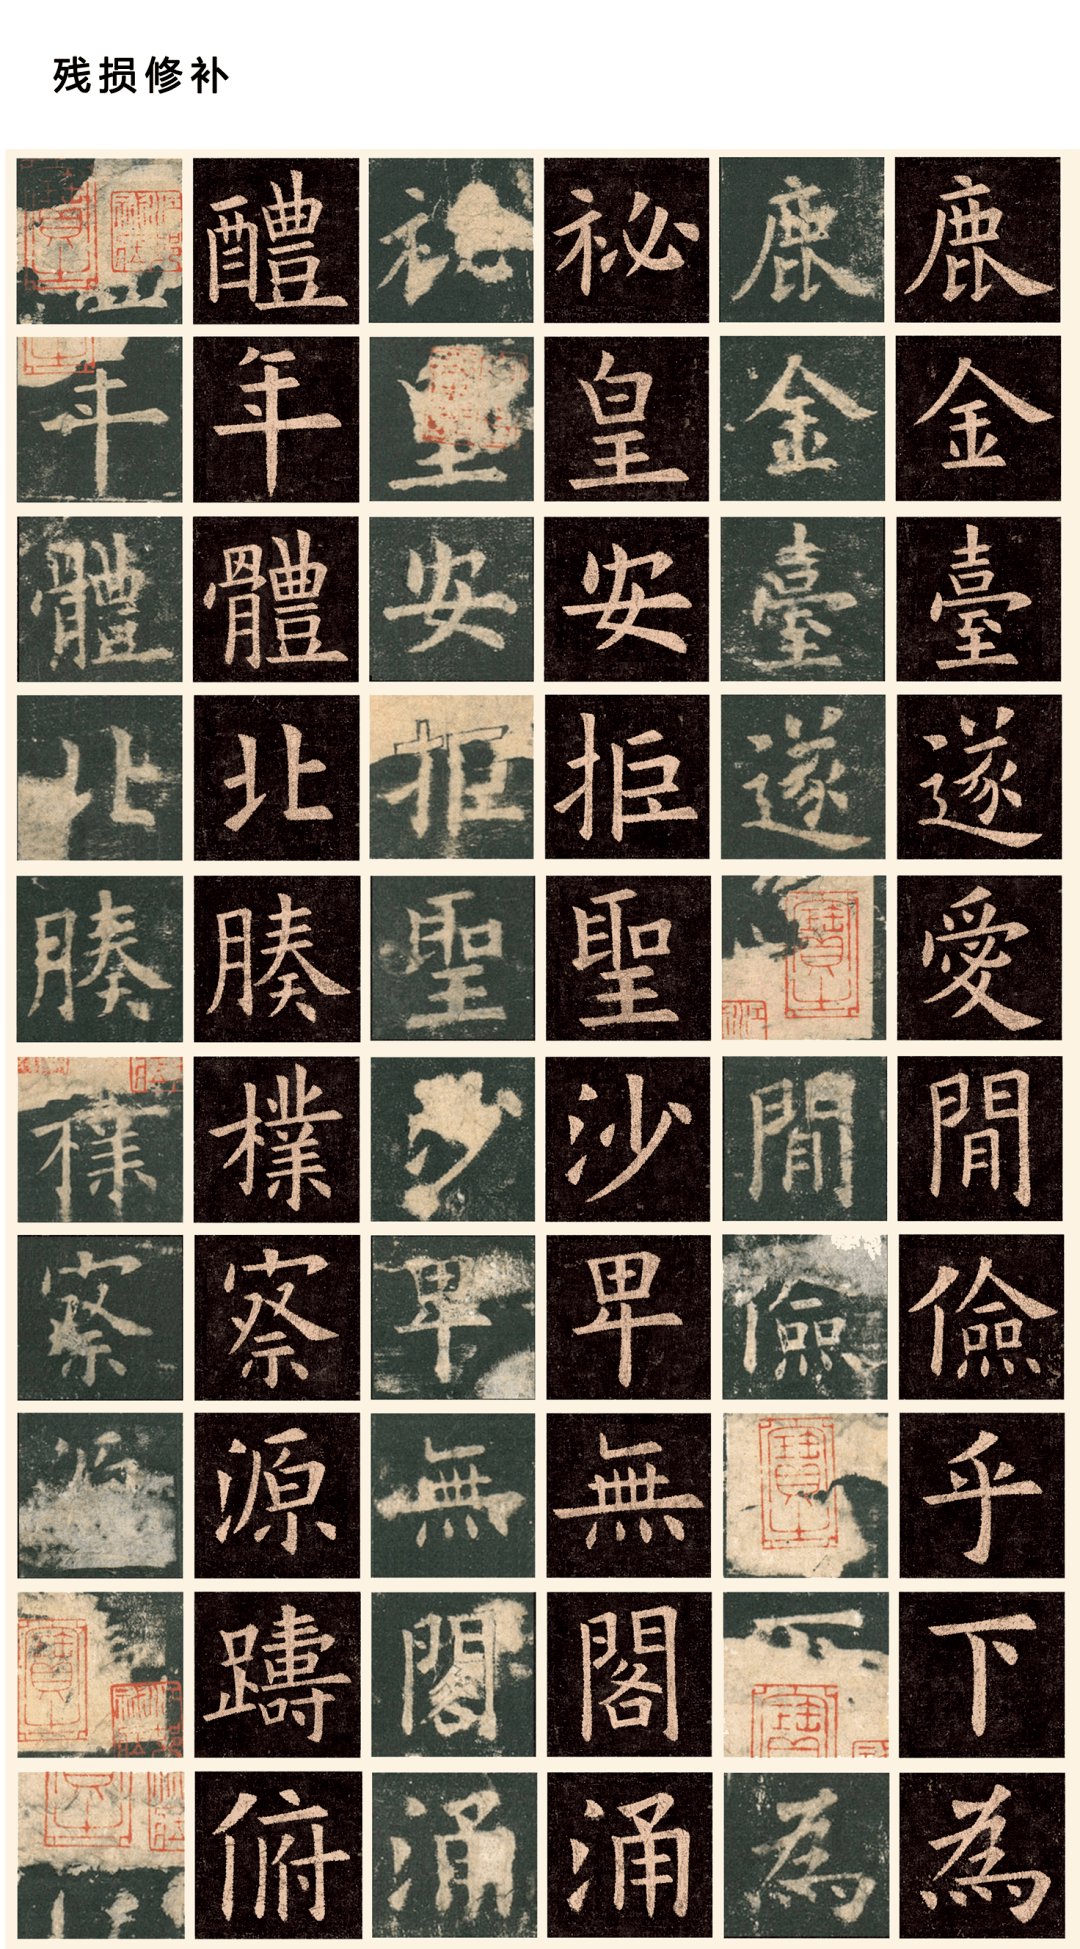 残损修补
醴 祕 鹿 鹿
年 年 皇 金 金
體 體 安 安 臺 臺
北 北 拒 拒 遂 遂
腠 腠 聖 聖 愛
樸 沙 閒 閒
察 察 卑 卑 儉 儉
源 無 無 乎
躊 閣 閣 下
俯 涌 涌 為 為